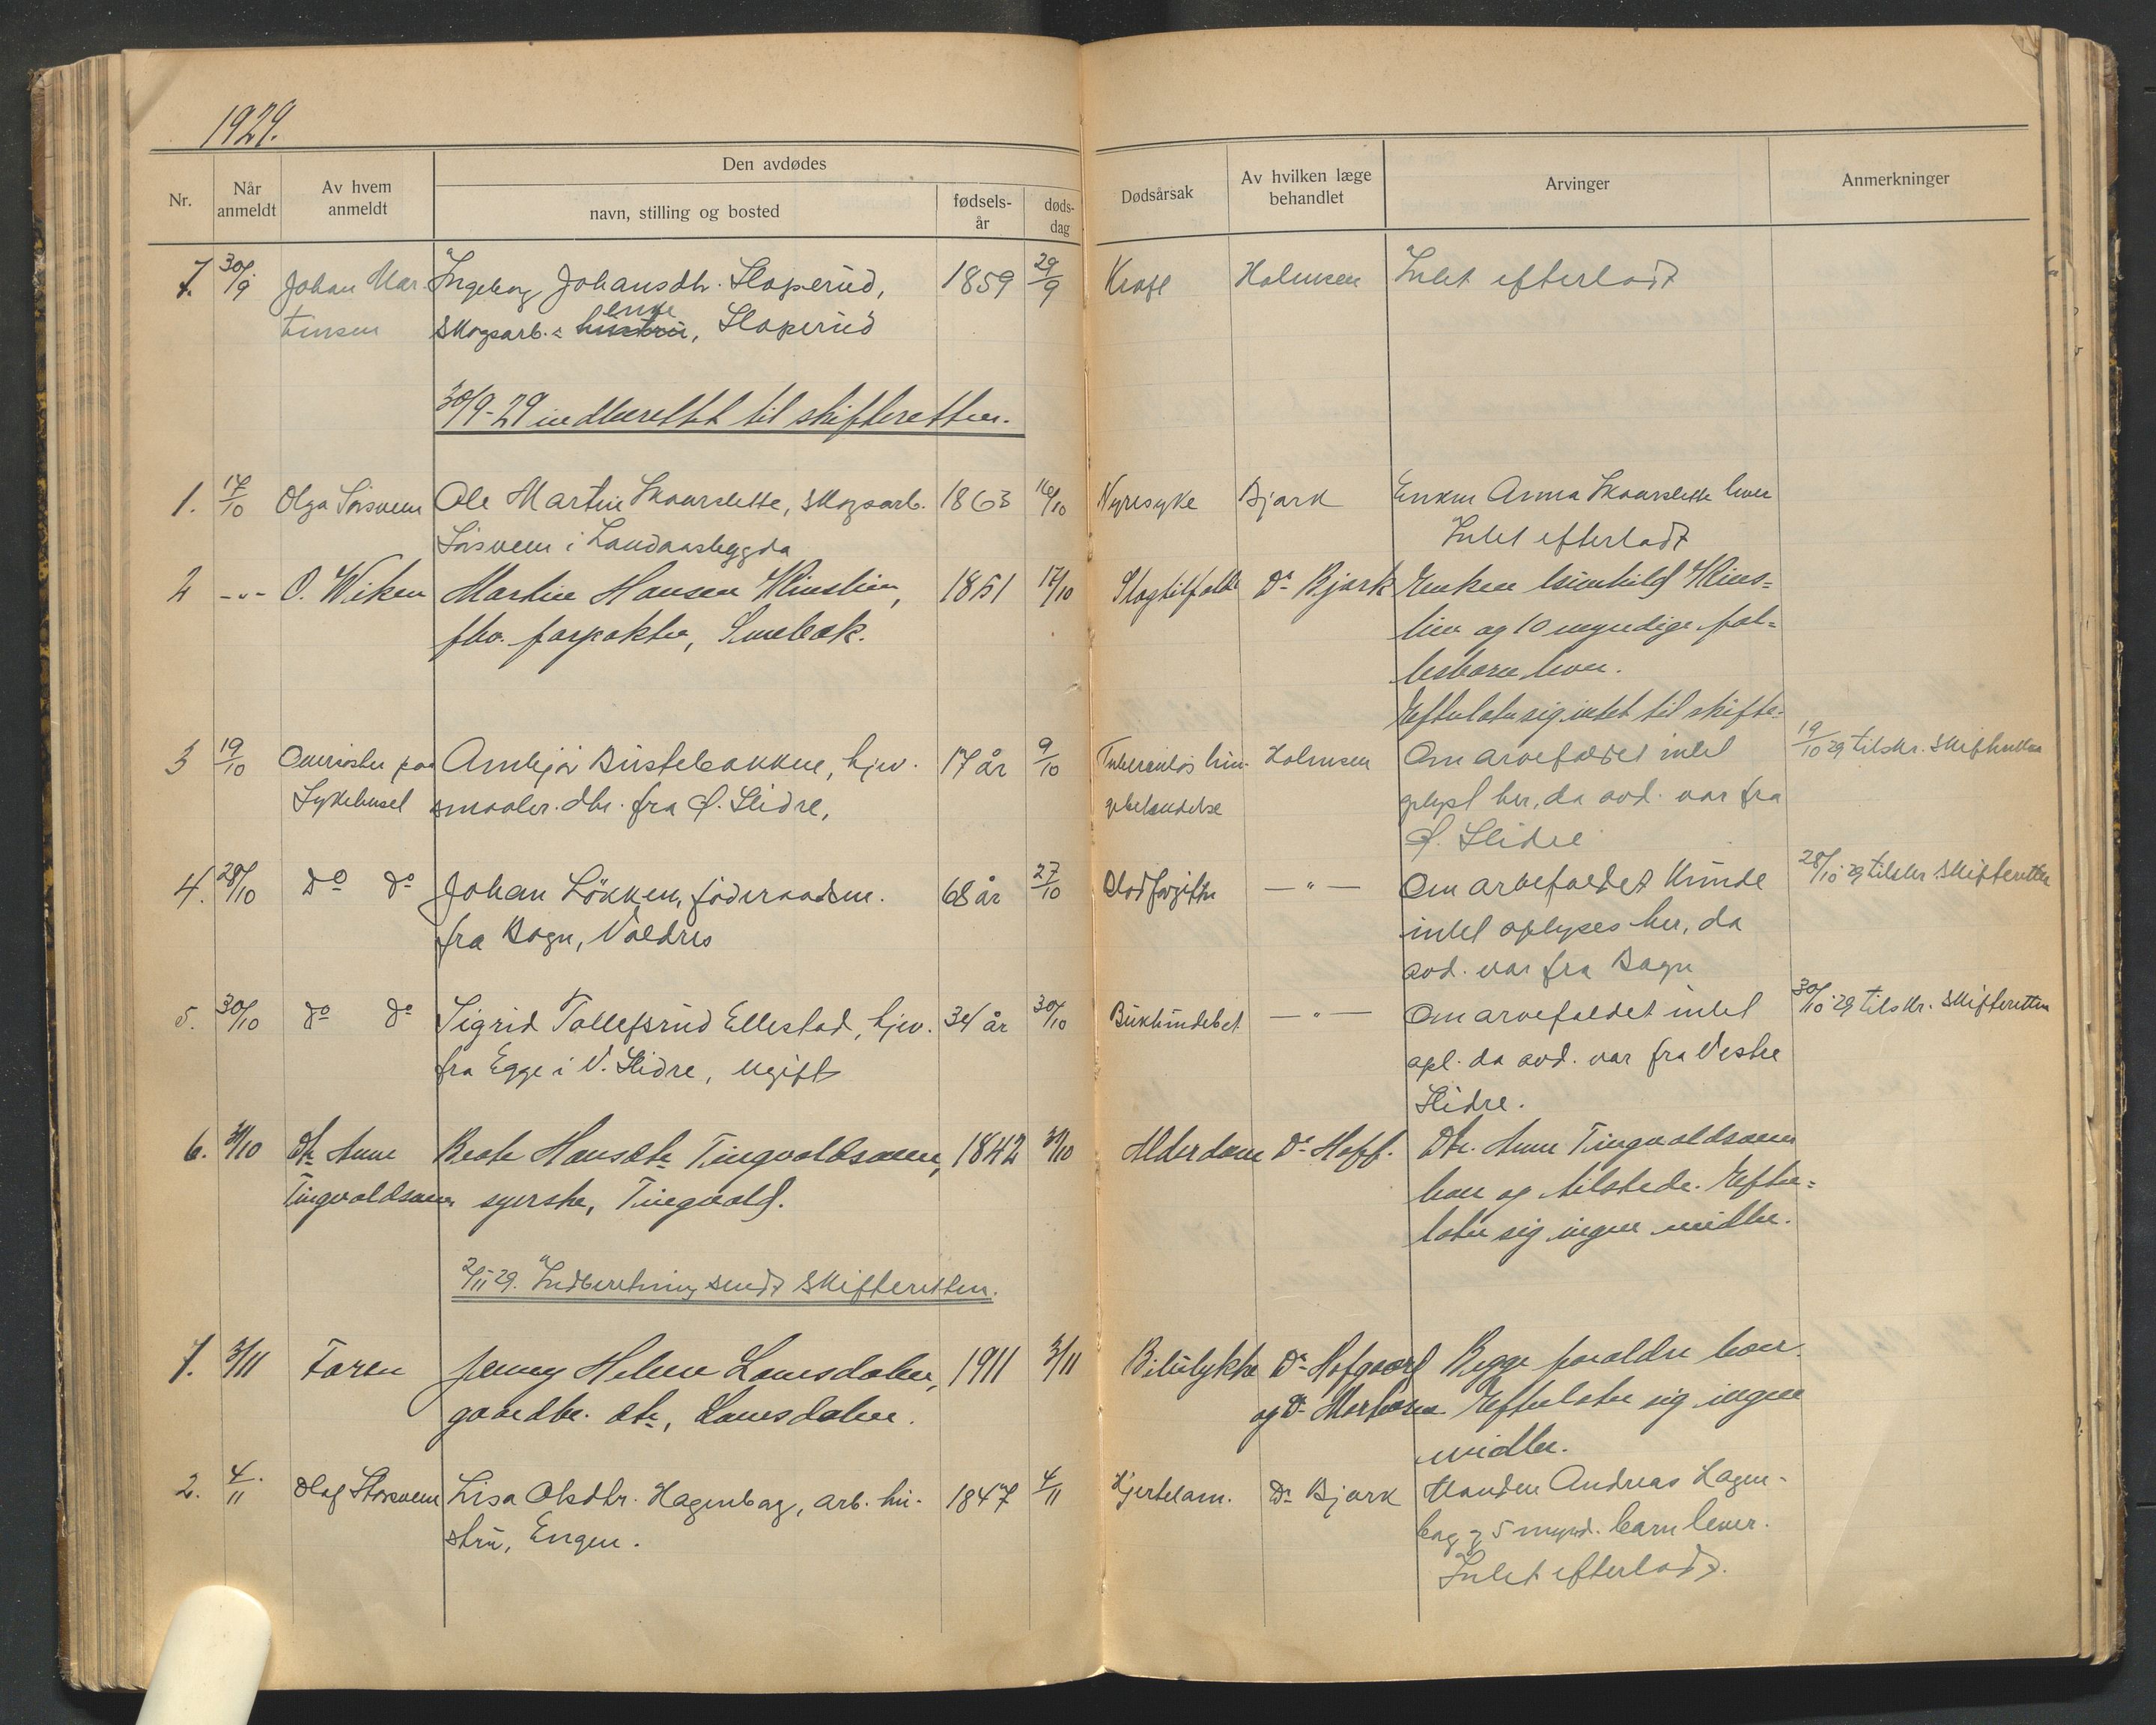 1929.
Nr.
Når anmeldt
Av hvem anmeldt
Den avdødes
navn, stilling og bosted
fødsels-år
døds-dag
Dødsårsak
Av hvilken læge behandlet
Arvinger
Anmerkninger
7. 30/9 Johan Mar Ingeborg Johansdtr. Slaperud, 1859 29/9 Kræft Holmsen Intet efterladt
tinsen skogsarb.s hustru enke, Slaperud
30/9-29 indberettet til skifteretten.
1. 17/10 Olga Sørsveen Ole Martin Skaarslette, skogsarb. 1863 16/10 Nyresyke Bjark Enken Anna Skaarslette lever
Sørsveen i Landaasbygda Intet efterladt
2 -"- O. Wiken Martin Hansen Klinslien, 1851 17/10 Slagtilfælde Dr. Bjark Enken Gunhild Klins=
fhv. forpakter, Smebæk. lien og 10 myndige fæl=
lesbarn lever.
Efterlater sig intet til skifte.
3 19/10 Oversøster paa Ambjør Bustebakken, hjev. 17 år 9/10 Tuberculøs hin- Holmsen Om arvefaldet intet 19/10 29 tilskr. skifteretten
Sykehuset smaabr. dtr. fra Ø. Slidre, gebetændelse oplyst her, da avd. var fra
Ø. Slidre
4. 28/10 Do do Johan Løkken, føderaadsm. 68 år 27/10 Blodforgiftn — " — Om arvefaldet kunde 28/10 29 tilskr skifteretten
fra Bagn, Valdres intet oplyses her, da
avd. var fra Bagn
5. 30/10 do do Sigrid Tollefsrud Ellestad, hjev. 34 år 30/10 Bukhindebet — " — Om arvefaldet intet 30/10 29 tilskr. skifteretten
fra Egge i V. Slidre, ugift opl. da avd. var fra Vestre
Slidre.
6. 31/10 Dtr Anne Beate Hansdtr Tingvoldsveen, 1842 31/10 Alderdom Dr. Hoff. Dtr. Anne Tingvoldsveen
Tingvoldsveen syerske, Tingvold. lever og tilstede. Efter=
later sig ingen midler.
2/11 29. Indberetning sendt skifteretten.
1. 3/11 Faren Jenny Helene Lausdalen, 1911 3/11 Bilulykke Dr. Hofgaard Begge forældre lever.
gaardbr. dtr, Lausdalen. og Dr. Efterlater sig ingen
midler.
2. 4/11 Olaf Storsveen Lisa Olsdtr. Hagenbag, arb. hu- 1847 4/11 Hjertelam. Dr Bjark Manden Andreas Hagen-
stru, Engen. bag og 5 mynd. barn lever.
Intet efterladt.